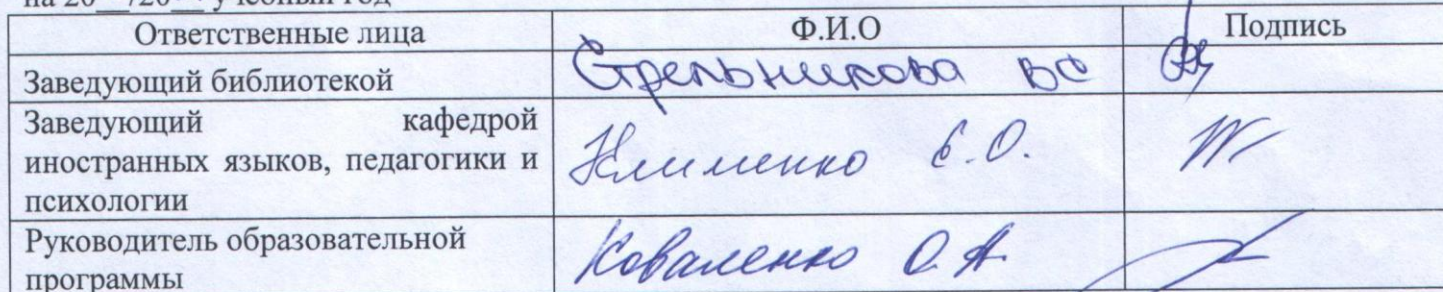 на 20__/20__ учебный год
Ответственные лица Ф.И.О Подпись
Заведующий библиотекой Стрельникова ВС
Заведующий кафедрой
иностранных языков, педагогики и Клименко Е.О.
психологии
Руководитель образовательной Коваленко О.А.
программы